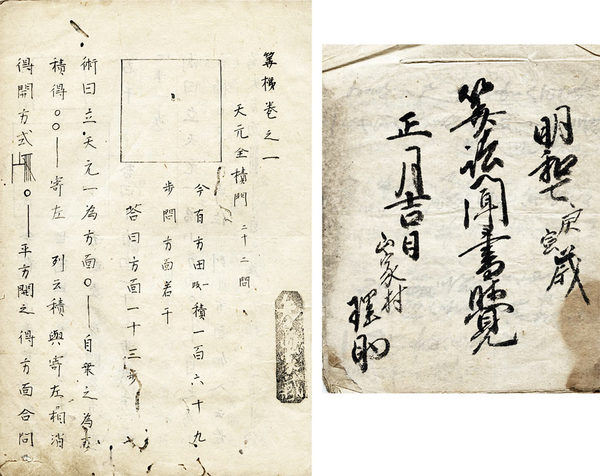 筭梯巻之一
天元全積門 二十二問
今有方田一段積一百六十九
歩問方面若干
答曰方面一十三歩
術曰立天元一為方面〇｜自乗之為方
積得〇〇｜寄左 列云積與寄左相消
得開方式 〇｜平方開之得方面合問
明和七庚寅歳
筭法聞書覺
正月吉日
山家村
理助